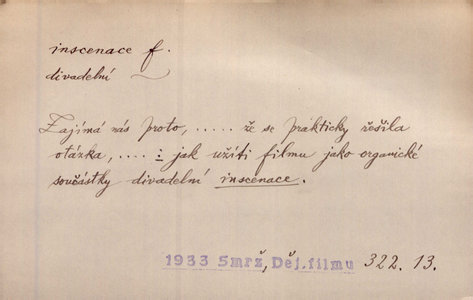 inscenace f.
divadelní
Zajímá nás proto, ..... že se prakticky řešila
otázka, .... : jak užíti filmu jako organické
součástky divadelní inscenace.
1933 Smrž, Děj. filmu 322. 13.